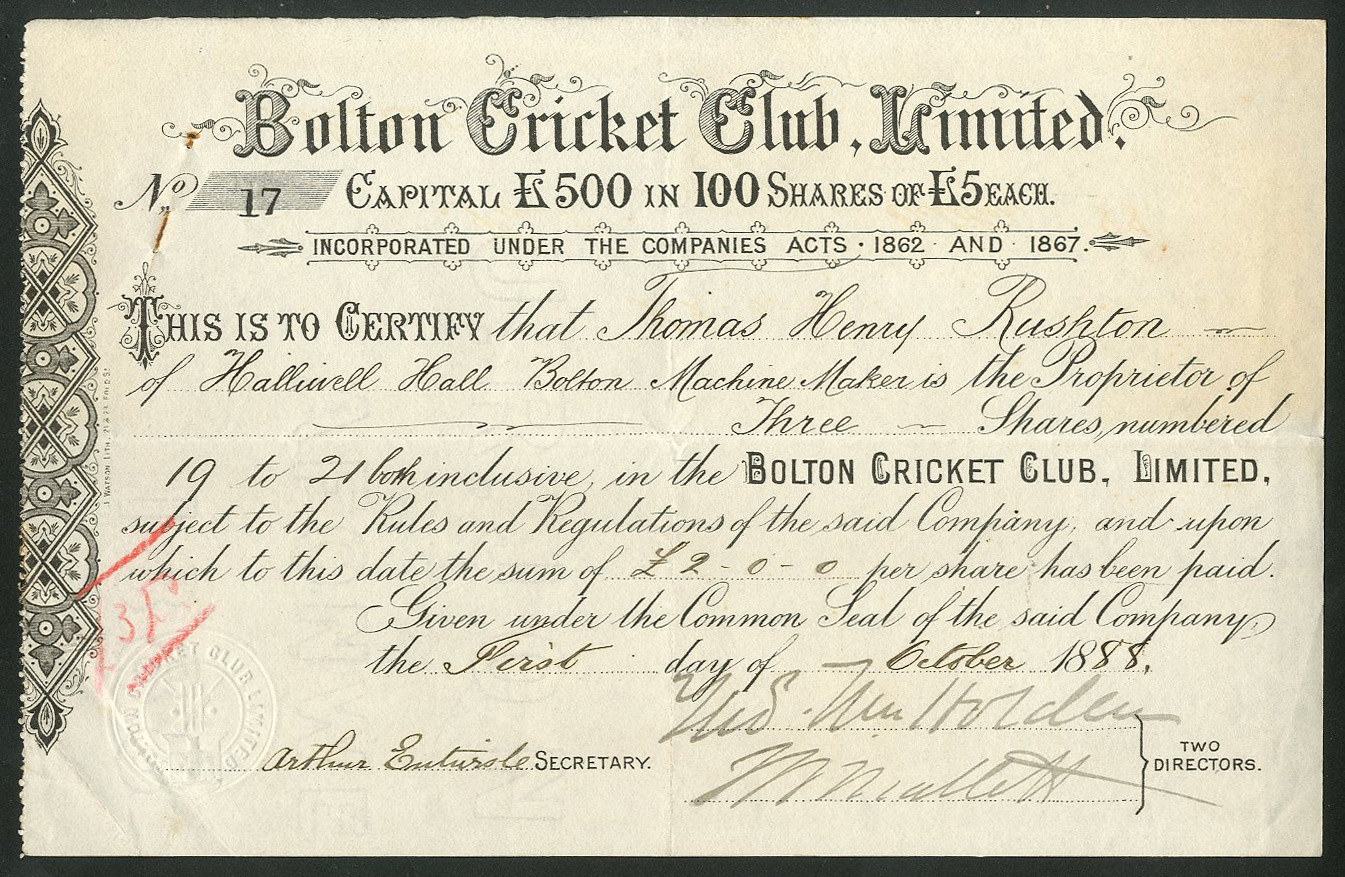 Bolton Cricket Club, Limited.
No. 17 CAPITAL £500 IN 100 SHARES OF £5 EACH.
INCORPORATED UNDER THE COMPANIES ACTS · 1862 AND 1867.
THIS IS TO CERTIFY that Thomas Henry Rushton
of Halliwell Hall Bolton Machine Maker is the Proprietor of
Three Shares, numbered
19 to 21 both inclusive, in the BOLTON CRICKET CLUB, LIMITED,
subject to the Rules and Regulations of the said Company, and upon
which to this date the sum of £2-0-0 per share has been paid.
Given under the Common Seal of the said Company
the First day of October 1888.
Wm Holden
Arthur Entwisle SECRETARY.
TWO
DIRECTORS.
CRICKET CLUB LIMITED